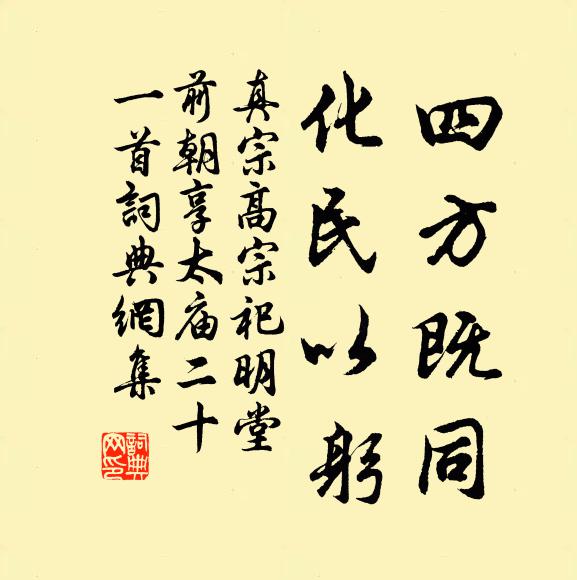 四方既同
化民以躬
真宗高宗祀明堂
前朝享太庙二十
一首詞典網集
詞典网印